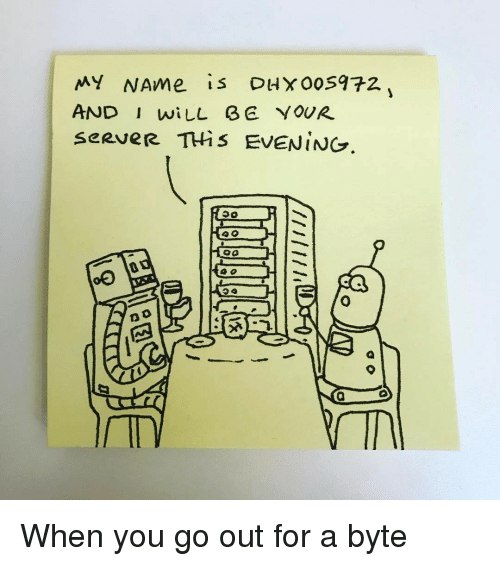 MY NAMe is DHX005972,
AND I WiLL BE YOUR
SeRVeR THiS EVENiNG.
When you go out for a byte